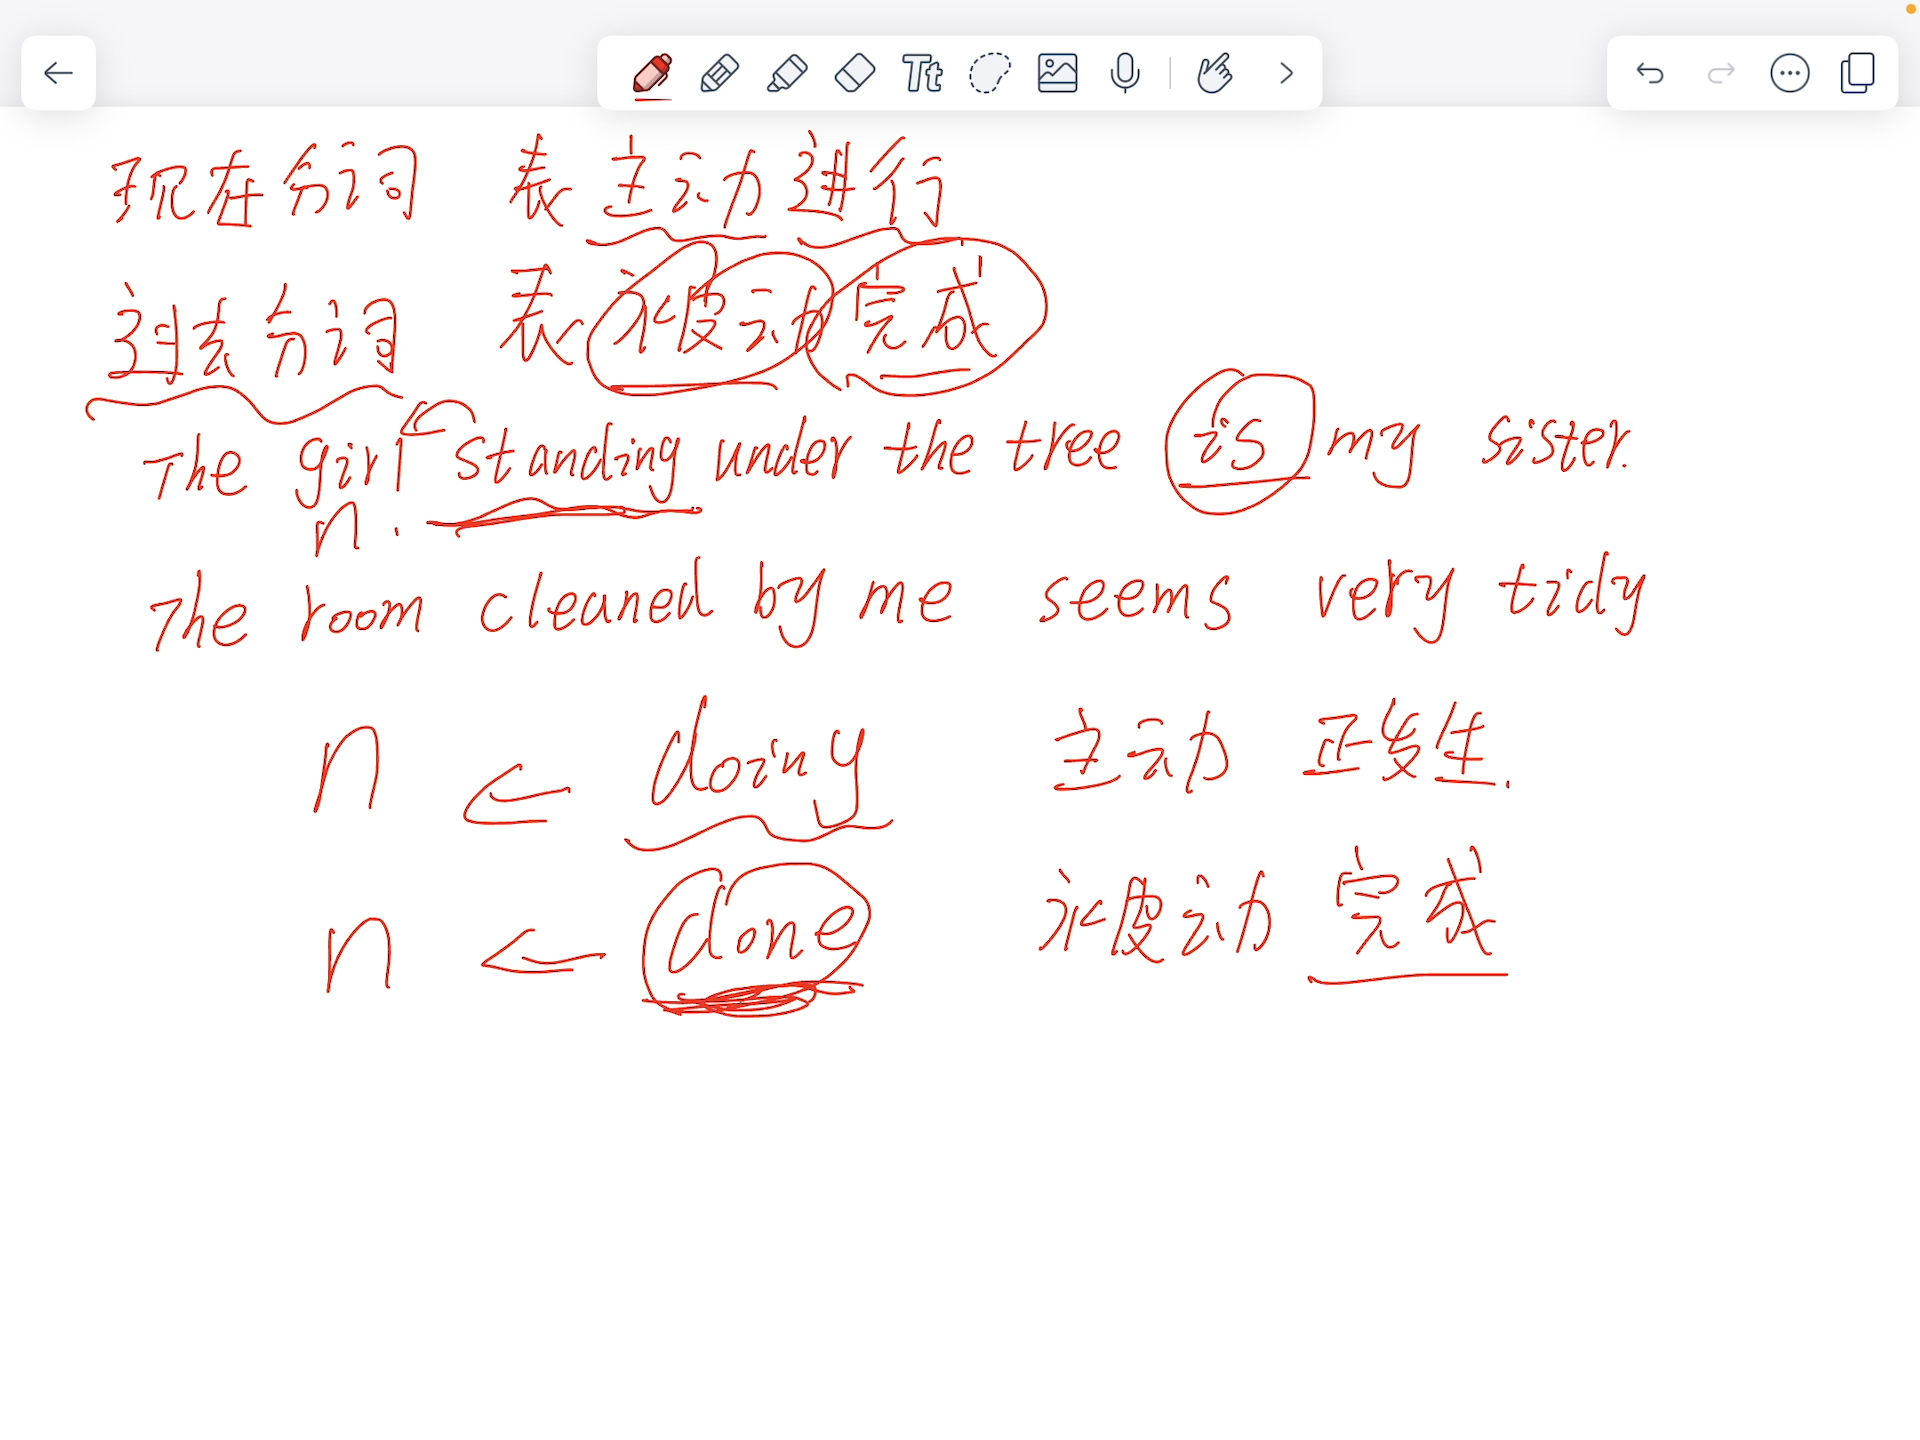 现在分词 表主动进行
过去分词 表被动完成
The girl standing under the tree is my sister.
n.
The room cleaned by me seems very tidy
n ← doing 主动 正发生.
n ← done 被动 完成